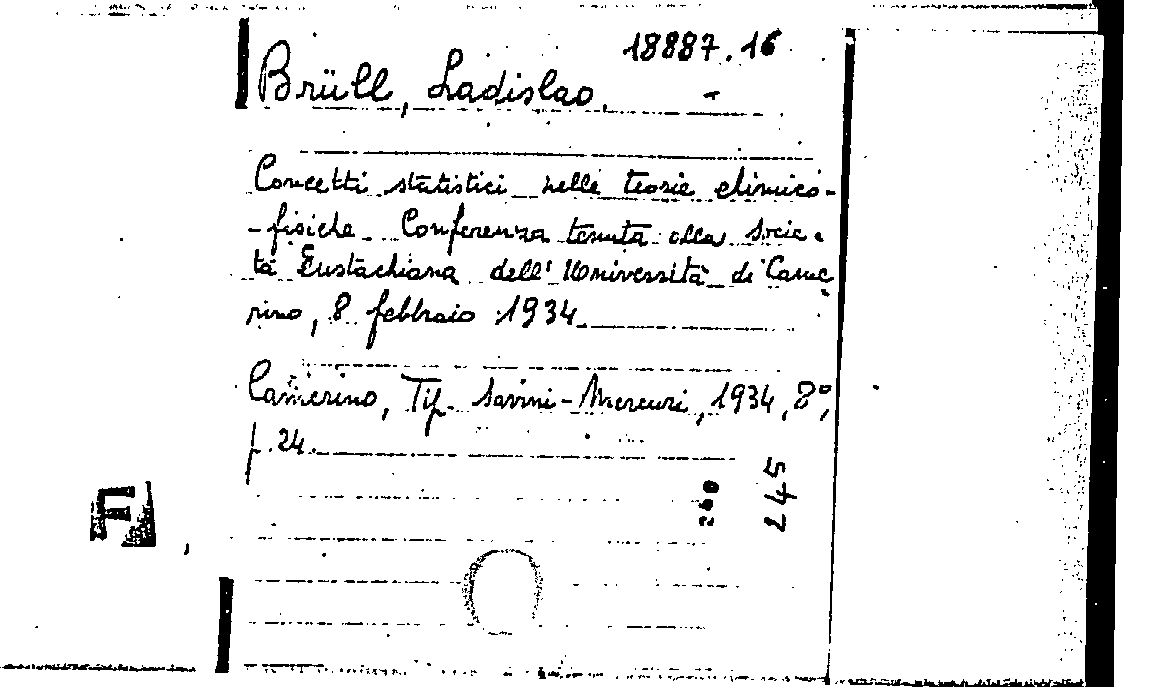 18887.16
Brüll, Ladislao.
Concetti statistici nelle teorie chimico-
-fisiche. Conferenza tenuta alla Socie-
tà Eustachiana dell'Università di Came
rino, 8 febbraio 1934.
Camerino, Tip. Savini-Mercuri, 1934, 8°,
p. 24.
245
240
F